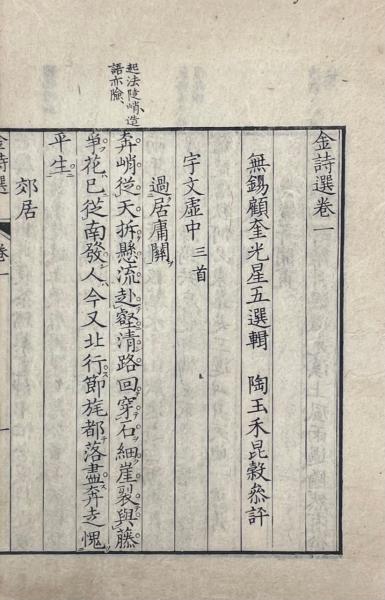 金詩選卷一
無錫顧奎光星五選輯　陶玉禾昆穀叅評
宇文虛中三首
過居庸關
起法陡峭、造
語亦險、
奔峭從天拆懸流赴壑清路回穿石細崖裂與藤
爭花已從南發人今又北行節旄都落盡奔走愧
平生
郊居
金詩選 卷一 一